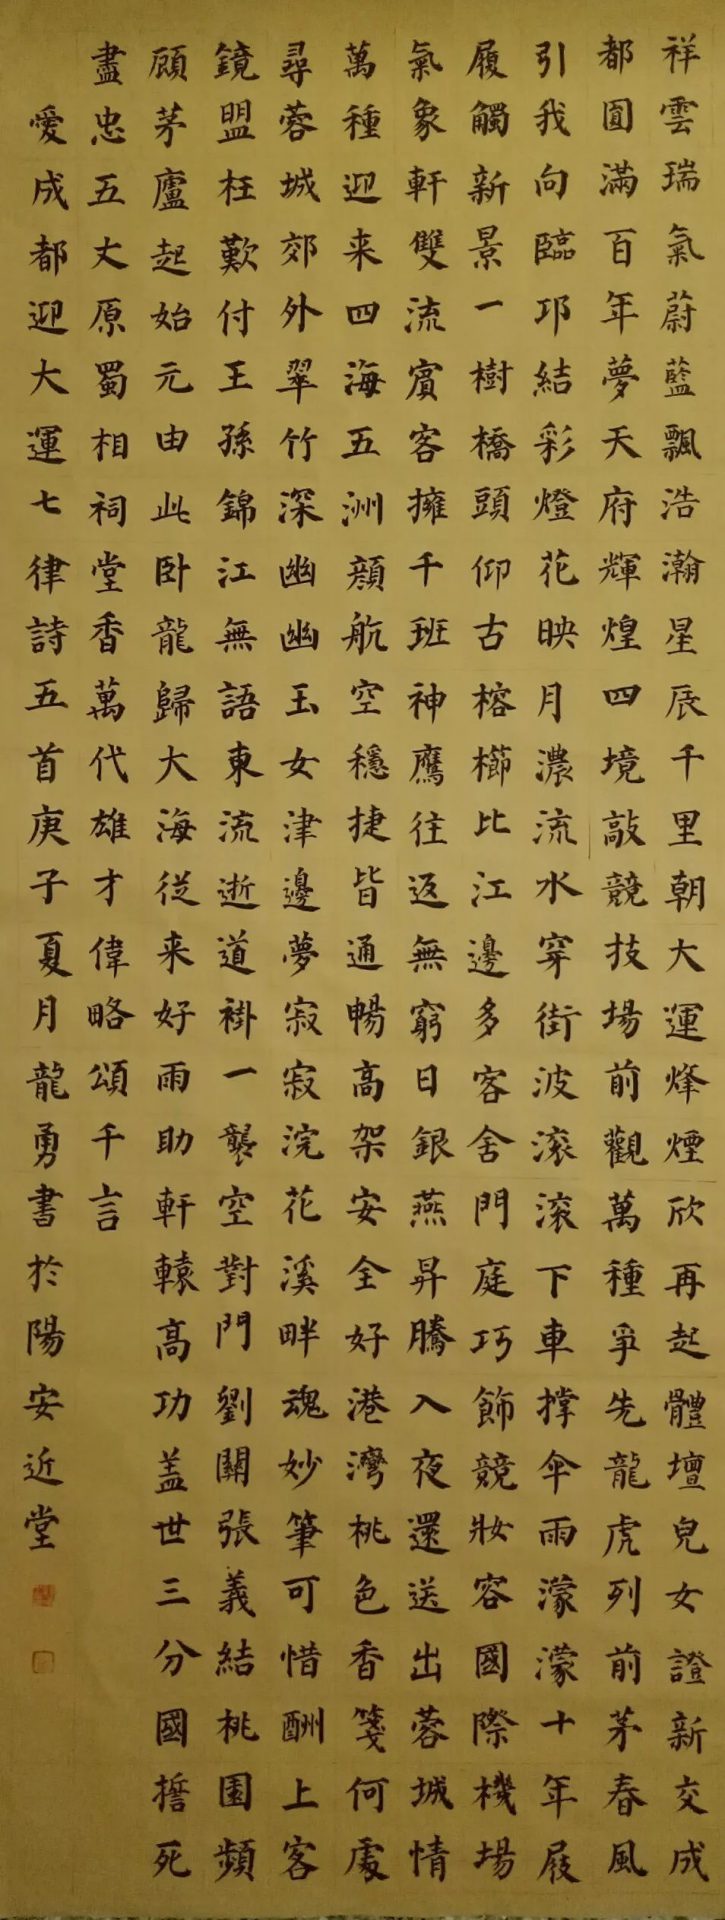 祥雲瑞氣蔚藍飄浩瀚星辰千里朝大運烽煙欣再起體壇兒女證新交成
都圓滿百年夢天府輝煌四境敲競技場前觀萬種爭先龍虎列前茅春風
引我向臨邛結彩燈花映月濃流水穿街波滾滾下車撐傘雨濛濛十年屐
履觸新景一樹橋頭仰古榕櫛比江邊多客舍門庭巧飾競妝容國際機場
氣象軒雙流賓客擁千班神鷹往返無窮日銀燕昇騰入夜還送出蓉城情
萬種迎来四海五洲顏航空穩捷皆通暢高架安全好港灣桃色香箋何處
尋蓉城郊外翠竹深幽幽玉女津邊夢寂寂浣花溪畔魂妙筆可惜酬上客
鏡盟枉歎付王孫錦江無語東流逝道褂一襲空對門劉關張義結桃園頻
顧茅廬起始元由此卧龍歸大海從来好雨助軒轅高功盖世三分國誓死
盡忠五丈原蜀相祠堂香萬代雄才偉略頌千言
愛成都迎大運七律詩五首庚子夏月龍勇書於陽安近堂